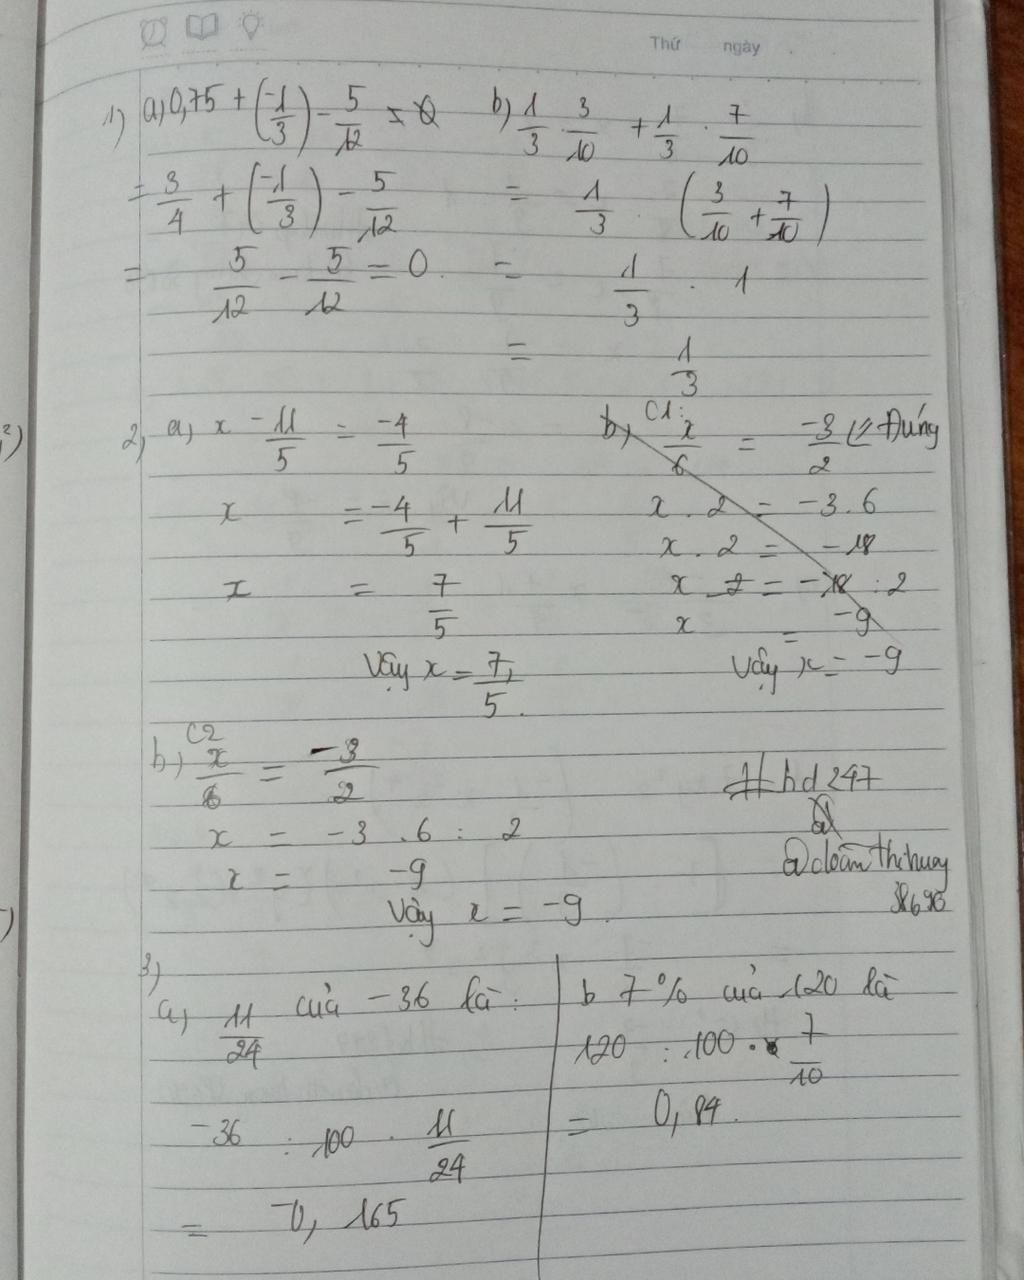 Thứ ngày
1) a, 0,75 + (-1/3) - 5/12 = 0
= 3/4 + (-1/3) - 5/12
= 5/12 - 5/12 = 0.
b) 1/3 . 3/10 + 1/3 . 7/10
= 1/3 . (3/10 + 7/10)
= 1/3 . 1
= 1/3
2, a, x - 11/5 = -4/5
x = -4/5 + 11/5
x = 7/5
Vậy x = 7/5.
b, C1: x/6 = -3/2 Đúng
x . 2 = -3 . 6
x . 2 = -18
x = -18 : 2
x = -9
Vậy x = -9
C2
b, x/6 = -3/2
x = -3 . 6 : 2
x = -9
Vậy x = -9.
#hd247
@doanthihuay
38690
3)
a, 11/24 của -36 là :
-36 : 100 . 11/24
= -0, 165
b 7% của 120 là
120 : 100 . 7/10
= 0, 84.